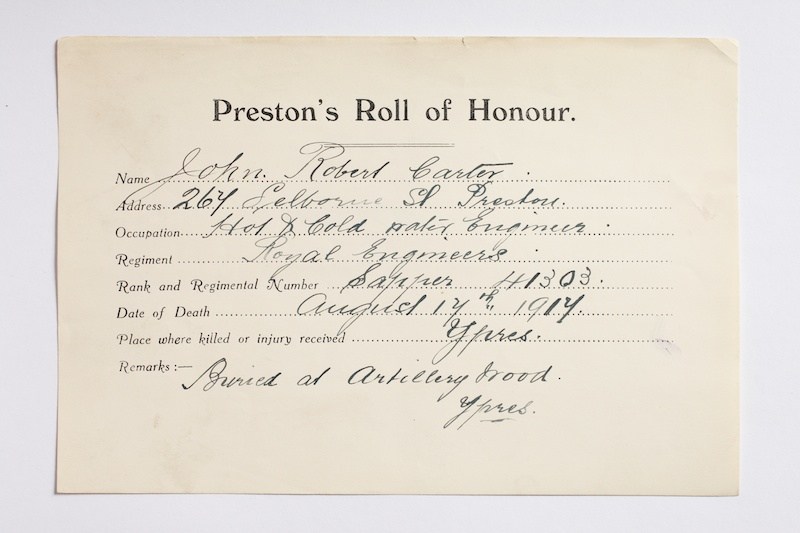 Preston's Roll of Honour.
Name John. Robert Carter.
Address 267 Selborne St Preston.
Occupation Hot & Cold water Engineer.
Regiment Royal Engineers.
Rank and Regimental Number Sapper 41303.
Date of Death August 17th 1917.
Place where killed or injury received Ypres.
Remarks:— Buried at Artillery Wood.
Ypres.